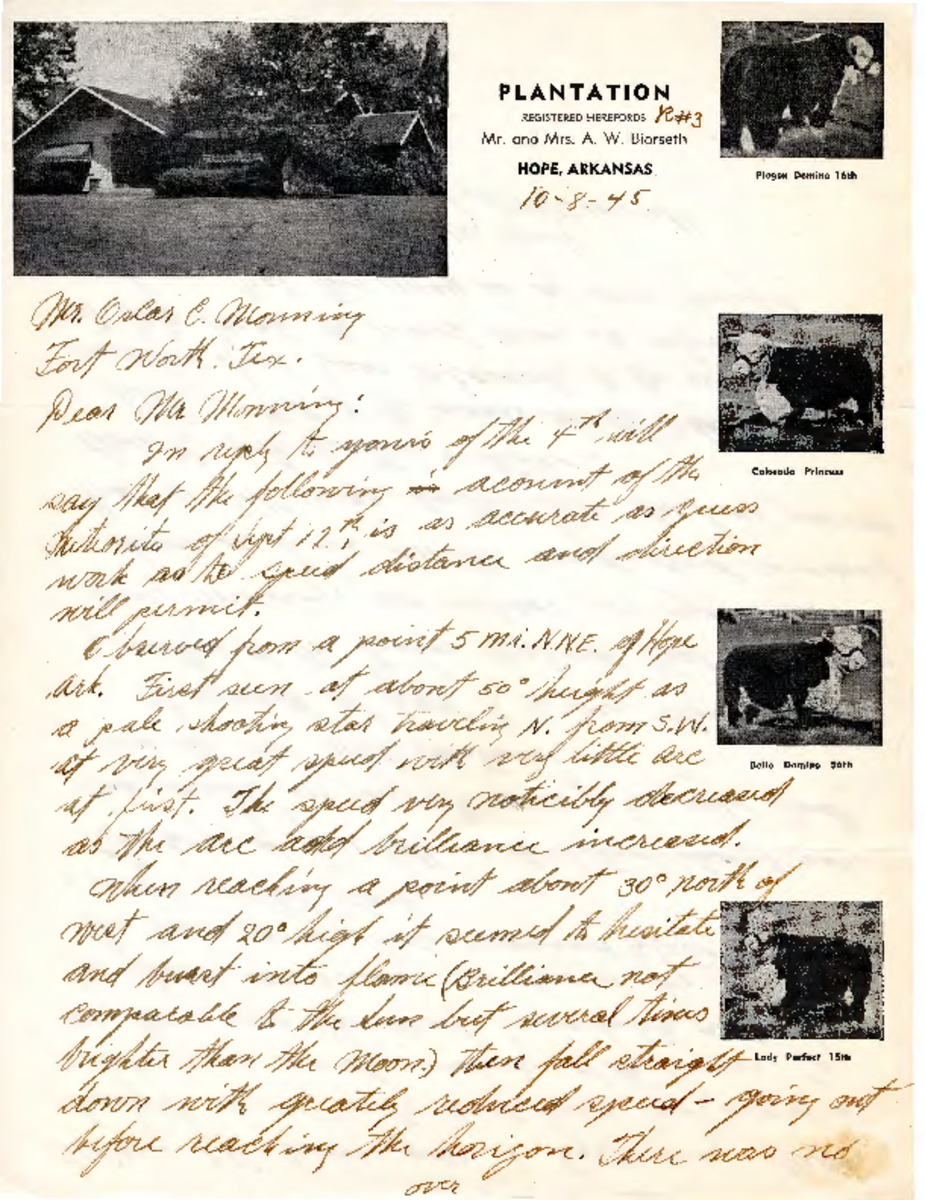 PLANTATION
REGISTERED HEREFORDS R#3
Mr. and Mrs. A. W. Biorseth
HOPE, ARKANSAS
10-8-45
Plogon Domino 16th
Mr. Oscar E. Monning
Fort Worth. Tex.
Colorado Princess
Dear Mr Monning:
In reply to yours of the 4th will
say that the following account of the
meteorite of Sept 12th, is as accurate as guess
work as to speed distance and direction
will permit.
Observed from a point 5 mi. N.N.E. of Hope
Ark. First seen at about 50° height as
a pale shooting star traveling N. from S.W.
at very great speed with very little arc
Domino 50th
at first. The speed very noticibly decreased
as the arc add brilliance increased.
When reaching a point about 30° north of
west and 20° high it seemed to hesitate
and burst into flame (Brilliance not
comparable to the Sun but several times
brighter than the Moon.) then fall straight
Lady Perfect 15th
down with greately reduced speed - going out
before reaching the horizon. There was no
over